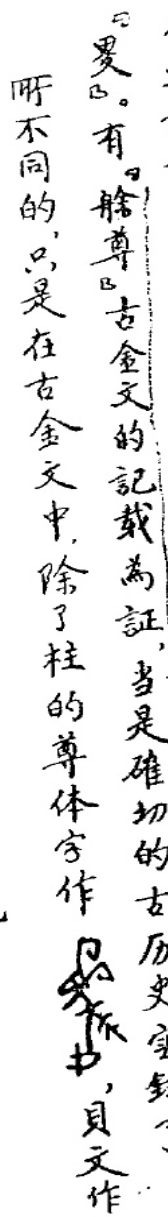 『畟』。有『艅尊』古金文的記载為証，当是確切的古历史实録，
所不同的，只是在古金文中，除了柱的尊体字作，貝文作